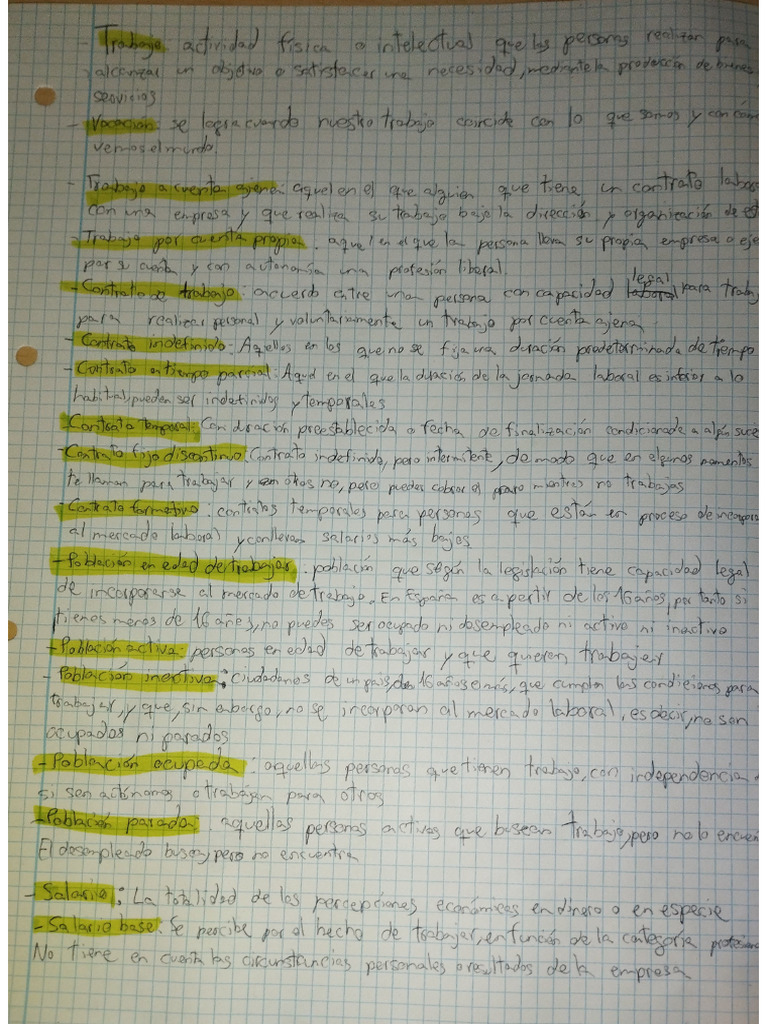 - Trabajo: actividad física o intelectual que las personas realizan para
alcanzar un objetivo o satisfacer una necesidad, mediante la producción de bienes
servicios
- Vocación: se logra cuando nuestro trabajo coincide con lo que somos y con cómo
vemos el mundo.
- Trabajo a cuenta ajena: aquel en el que alguien que tiene un contrato labora
con una empresa y que realiza su trabajo bajo la dirección y organización de est
- Trabajo por cuenta propia: aquel en el que la persona lleva su propia empresa o eje
por su cuenta y con autonomía una profesión liberal.
- Contrato de trabajo: acuerdo entre una persona con capacidad legal para traba
para realizar personal y voluntariamente un trabajo por cuenta ajena
- Contrato indefinido: Aquellos en los que no se fija una duración predeterminada de tiempo
- Contrato a tiempo parcial: Aquel en el que la duración de la jornada laboral es inferior a la
habitual, pueden ser indefinidos y temporales
- Contrato temporal: Con duración preestablecida o fecha de finalización condicionada a algún suce
- Contrato fijo discontinuo: Contrato indefinido, pero intermitente, de modo que en algunos momentos
te llaman para trabajar y en otros no, pero puedes cobrar el paro mientras no trabajas
- Contrato formativo: contratos temporales para personas que están en proceso de incorpora
al mercado laboral y conllevan salarios más bajos
- Población en edad de trabajar: población que según la legislación tiene capacidad legal
de incorporarse al mercado de trabajo. En España es a partir de los 16 años, por tanto si
tienes menos de 16 años, no puedes ser ocupado ni desempleado ni activo ni inactivo
- Población activa: personas en edad de trabajar y que quieren trabajar
- Población inactiva: ciudadanos de un país, de 16 años o más, que cumplan las condiciones para
trabajar, y que, sin embargo, no se incorporan al mercado laboral, es decir, no son
ocupados ni parados
- Población ocupada: aquellas personas que tienen trabajo, con independencia
si son autónomos o trabajan para otros
- Población parada: aquellas personas activas que buscan trabajo, pero no lo encuen
El desempleado busca, pero no encuentra
- Salario: La totalidad de las percepciones económicas en dinero o en especie
- Salario base: Se percibe por el hecho de trabajar, en función de la categoría profesiona
No tiene en cuenta las circunstancias personales o resultados de la empresa